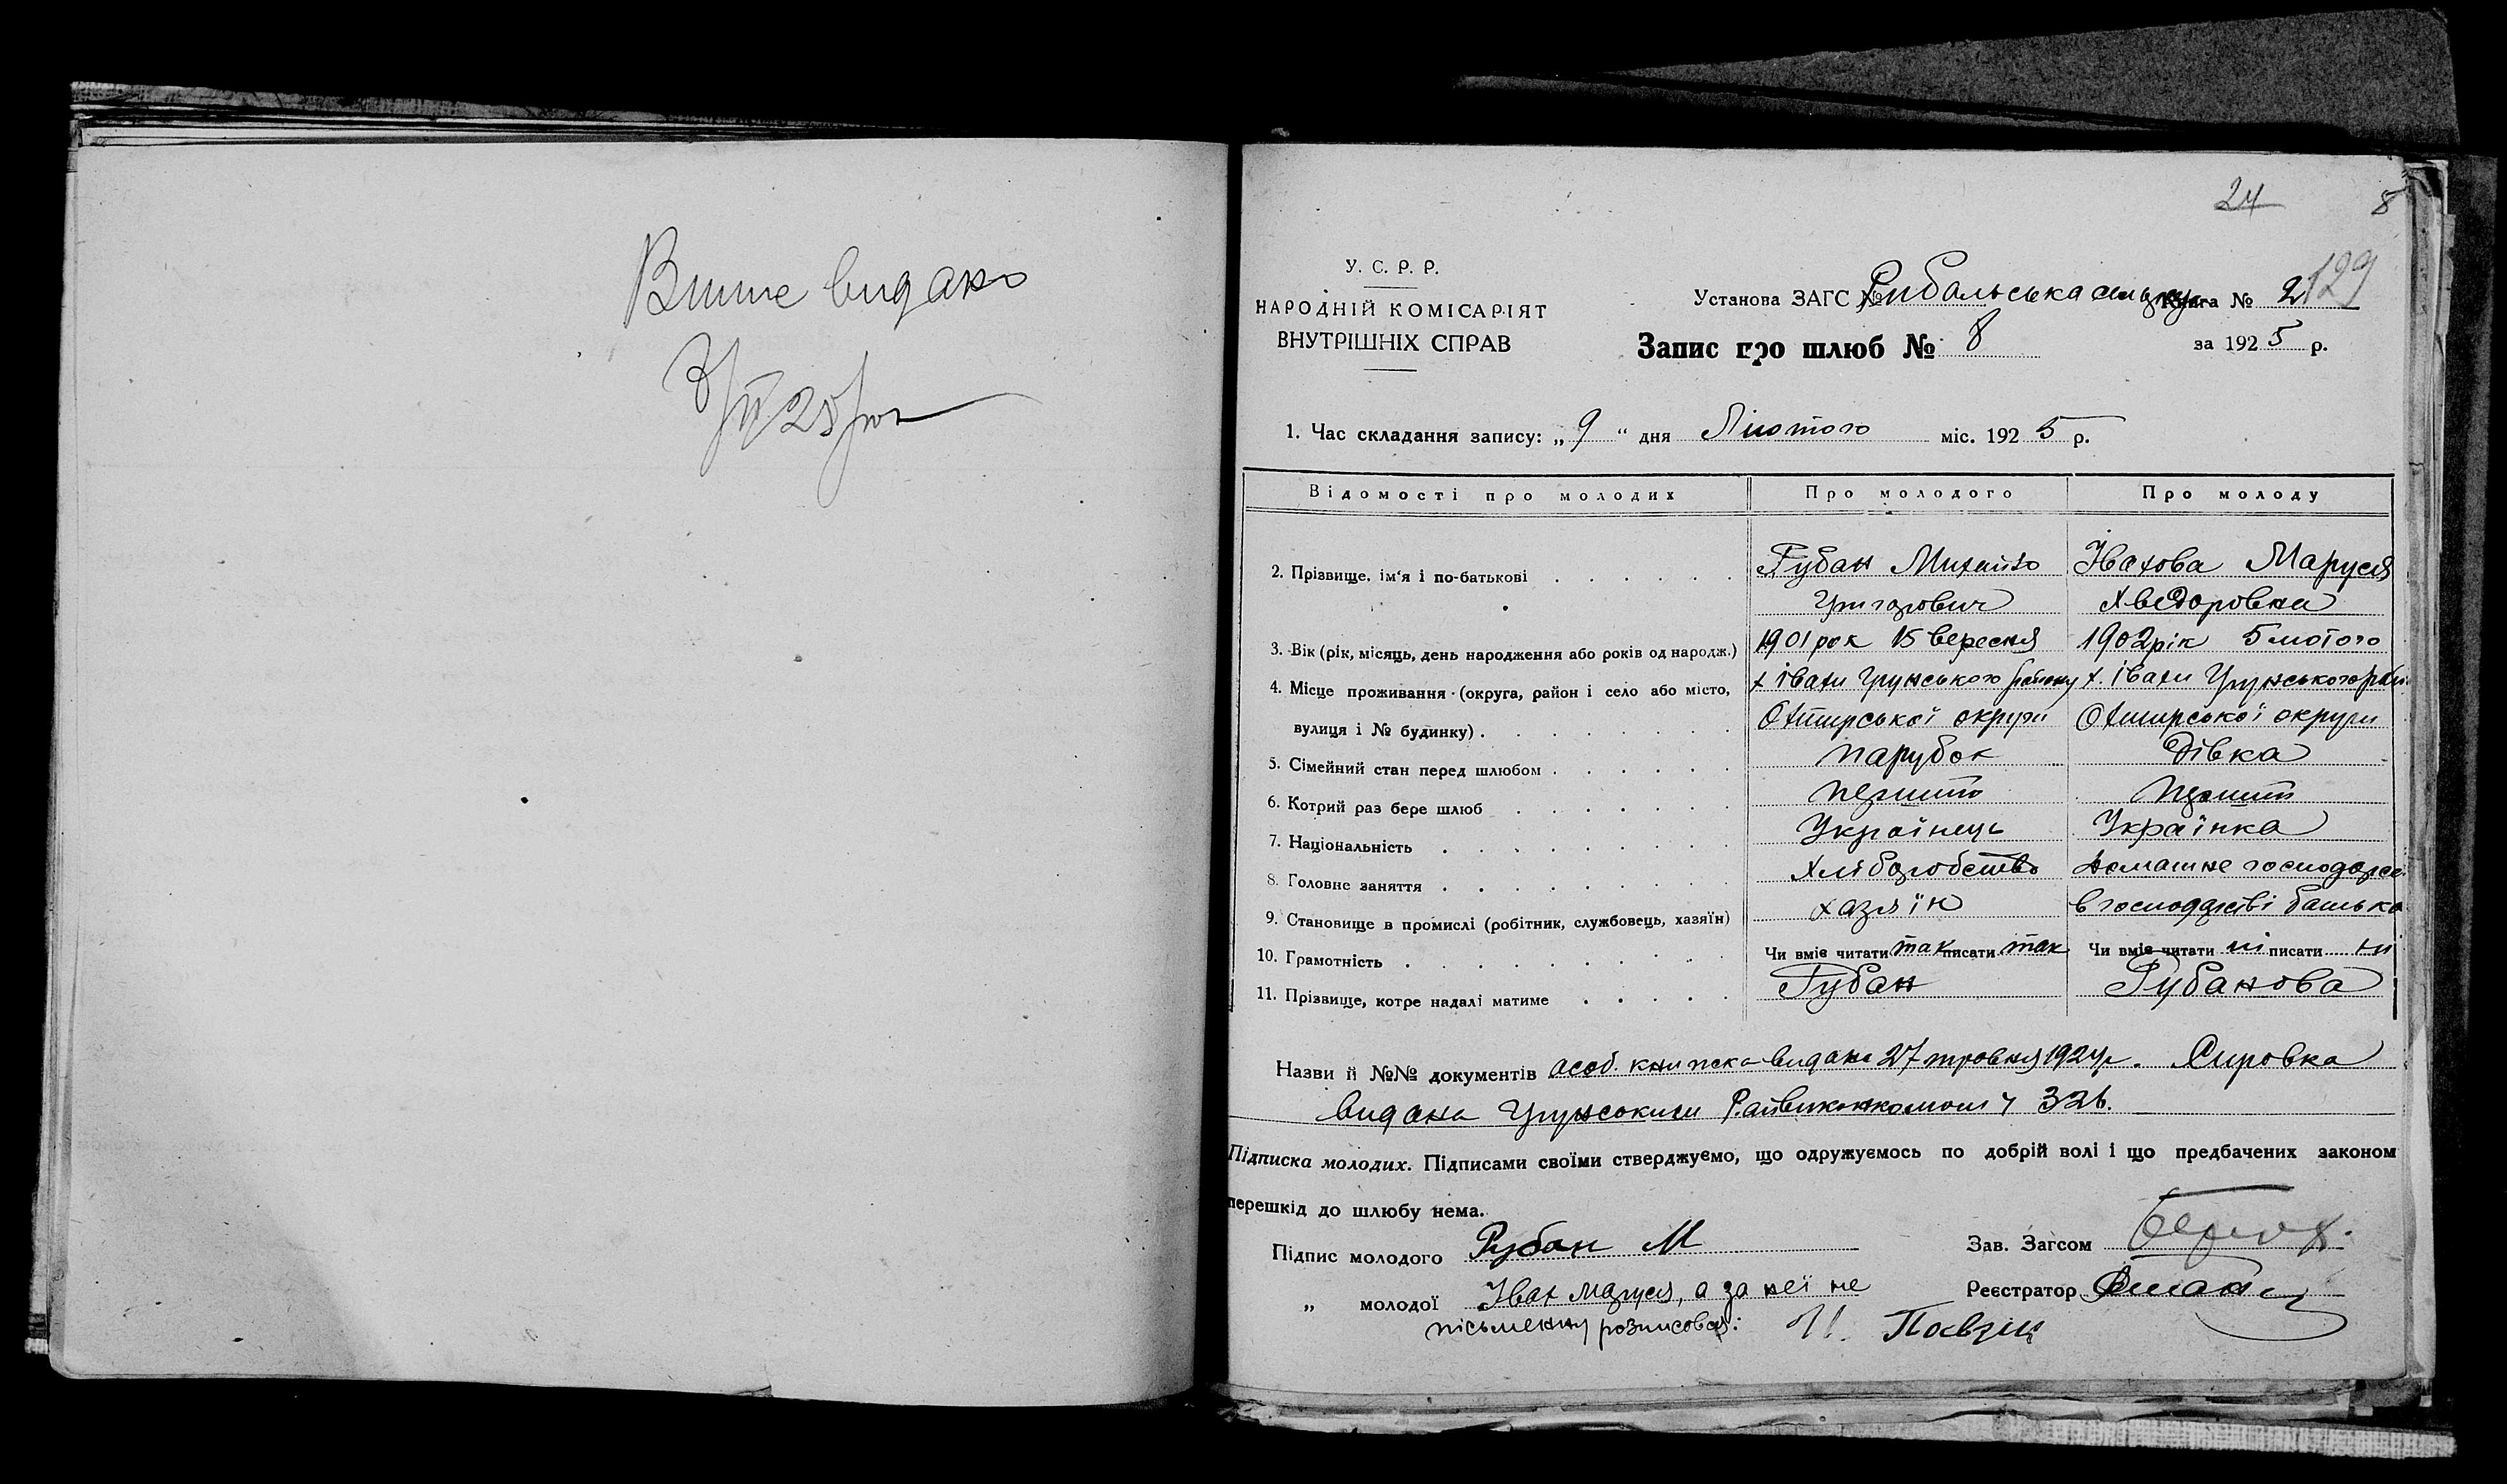 Випис видано
24 8
У. С. Р. Р.
НАРОДНІЙ КОМІСАРІЯТ
ВНУТРІШНІХ СПРАВ
Установа ЗАГС № Рибальська Книга № 2 129
Запис про шлюб № 8 за 1925 р.
1. Час складання запису: „9“ дня Лютого міс. 1925 р.
Відомості про молодих Про молодого Про молоду
2. Прізвище, ім'я і по-батькові Рубан Михайло Івахова Маруся
Григорович Хведоровна
3. Вік (рік, місяць, день народження або років од народж.) 1901 рок 15 вересня 1902 рік 5 лютого
4. Місце проживання (округа, район і село або місто, х івахи Грунського району х. івахи Грунського рай.
вулиця і № будинку) Охтирської округи Охтирської округи
5. Сімейний стан перед шлюбом парубок дівка
6. Котрий раз бере шлюб
7. Національність Українець Українка
8. Головне заняття Хліборобство домашне господарс
9. Становище в промислі (робітник, службовець, хазяїн) хазяїн в господарстві батька
10. Грамотність Чи вміє читати так писати так Чи вміє читати ні писати ні
11. Прізвище, котре надалі матиме Рубан Рубанова
Назви й №№ документів особ. книжка видана 27 травня 1924 р.
видана Грунським Райвиконкомом 326.
Підписка молодих. Підписами своїми стверджуємо, що одружуємось по добрій волі і що предбачених законом
перешкід до шлюбу нема.
Підпис молодого Рубан М Зав. Загсом
„ молодої Івах Маруся, а за неї не Реєстратор
письменну розписовся: